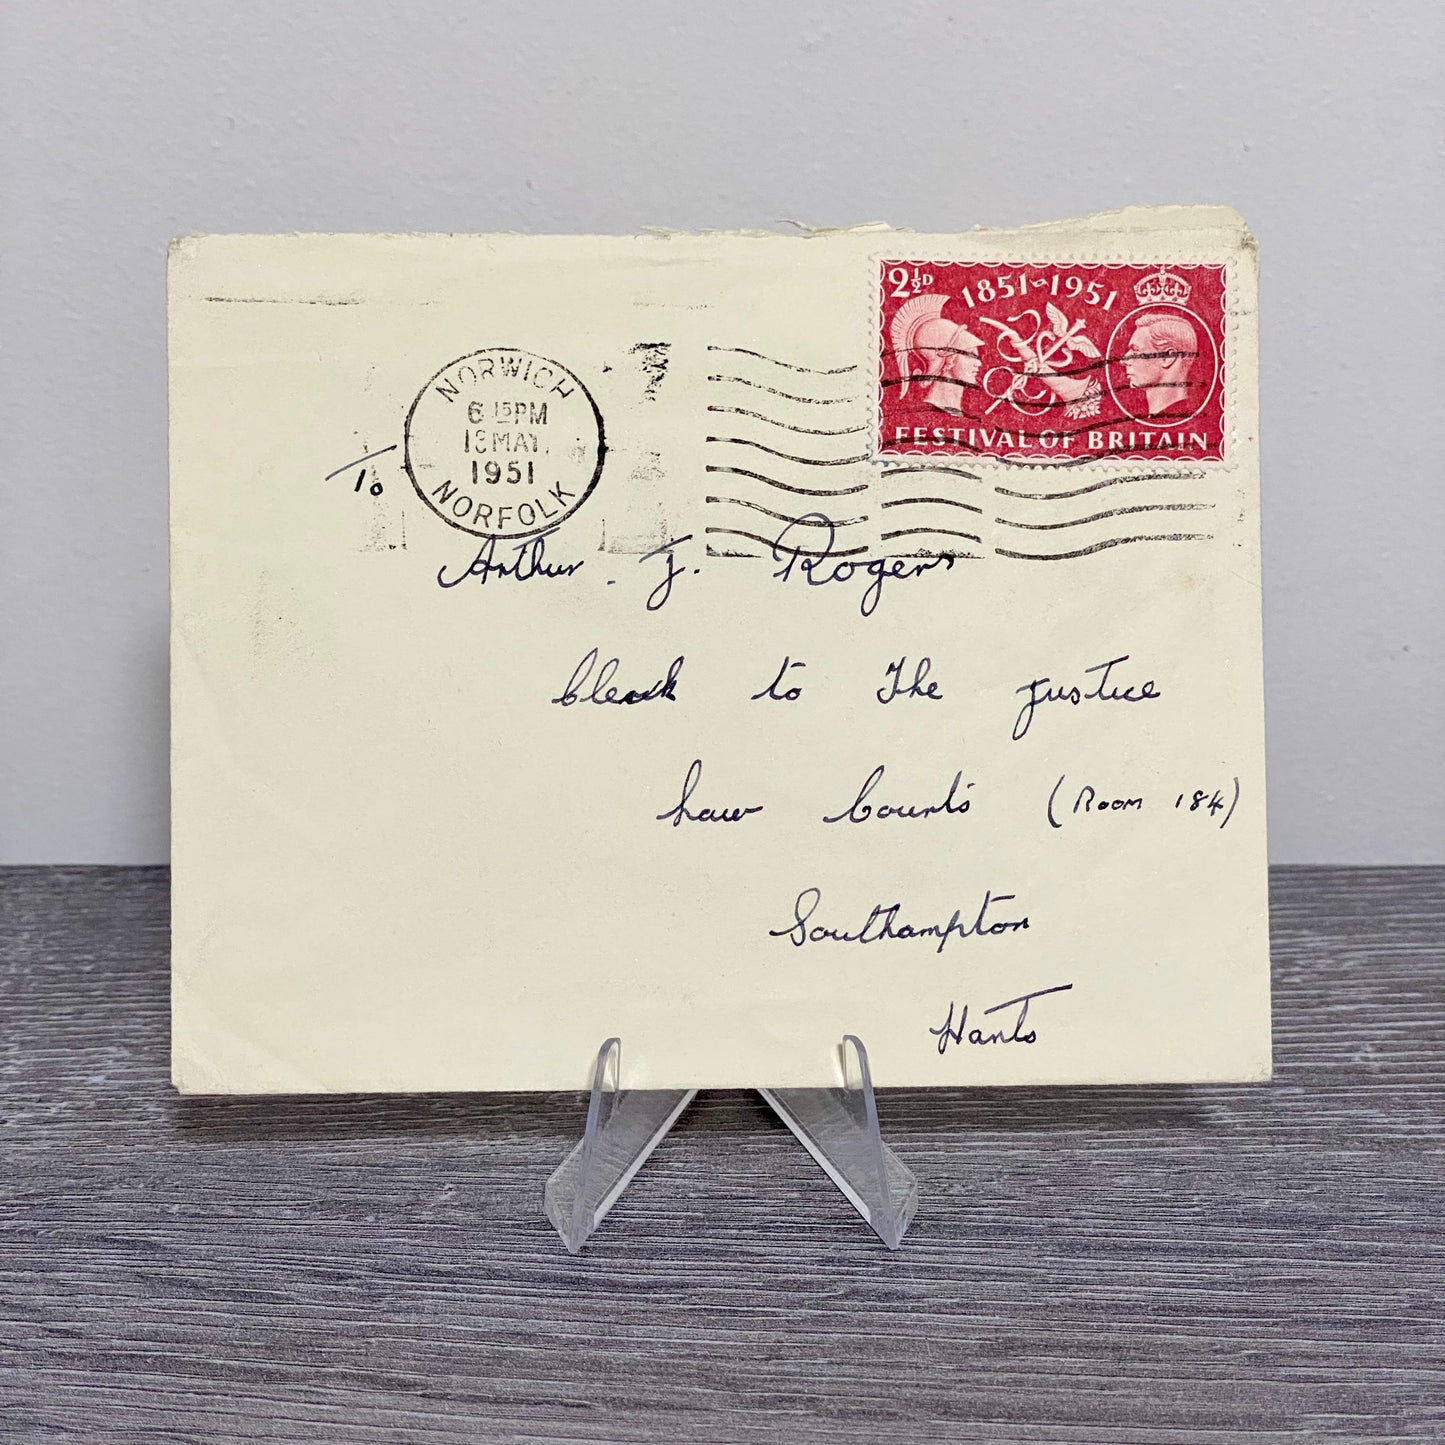 2½D
1851~1951
FESTIVAL OF BRITAIN
NORWICH
6 15PM
MAY
1951
NORFOLK
1/10
Arthur. J. Rogers
Clerk to The Justice
Law Courts (Room 184)
Southampton
Hants